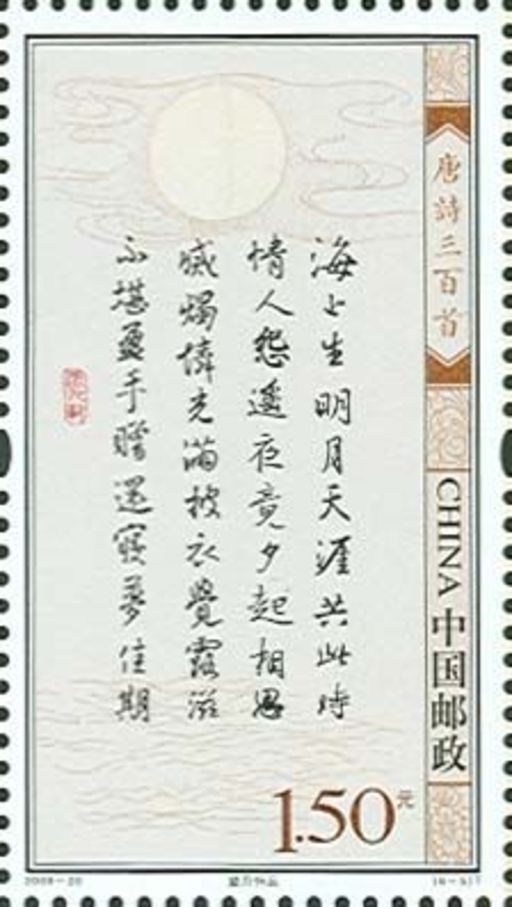 唐詩三百首
海上生明月天涯共此時
情人怨遙夜竟夕起相思
滅燭憐光滿披衣覺露滋
不堪盈手贈還寢夢佳期
CHINA 中国邮政
1.50元